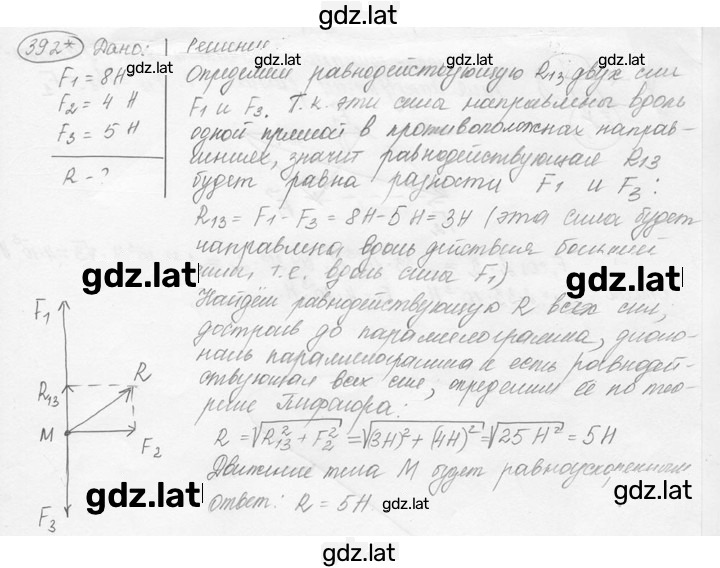 gdz.lat
392* Дано:
F1 = 8Н
F2 = 4 Н
F3 = 5 Н
R - ?
Решение:
gdz.lat
gdz.lat
Определим равнодействующую R13 двух сил
F1 и F3. Т.к. эти сила направлены вдоль
одной прямой в противоположнах направ-
лениях, значит равнодействующая R13
будет равна разности F1 и F3:
R13 = F1 - F3 = 8Н - 5Н = 3Н (эта сила будет
направлена вдоль действия большей
силы, т.е. вдоль сила F1)
gdz.lat
gdz.lat
Найдём равнодействующую R всех сил,
достроив до параллелограмма, диаго-
наль параллелограмма и есть равнодей-
ствующая всех сил, определим её по тео-
реме Пифагора:
R = √R13² + F2² = √(3Н)² + (4Н)² = √25 Н² = 5Н
Движение тела М будет равноускоренным
Ответ: R = 5Н.
F1
R13
R
М
F2
F3
gdz.lat
gdz.lat
gdz.lat